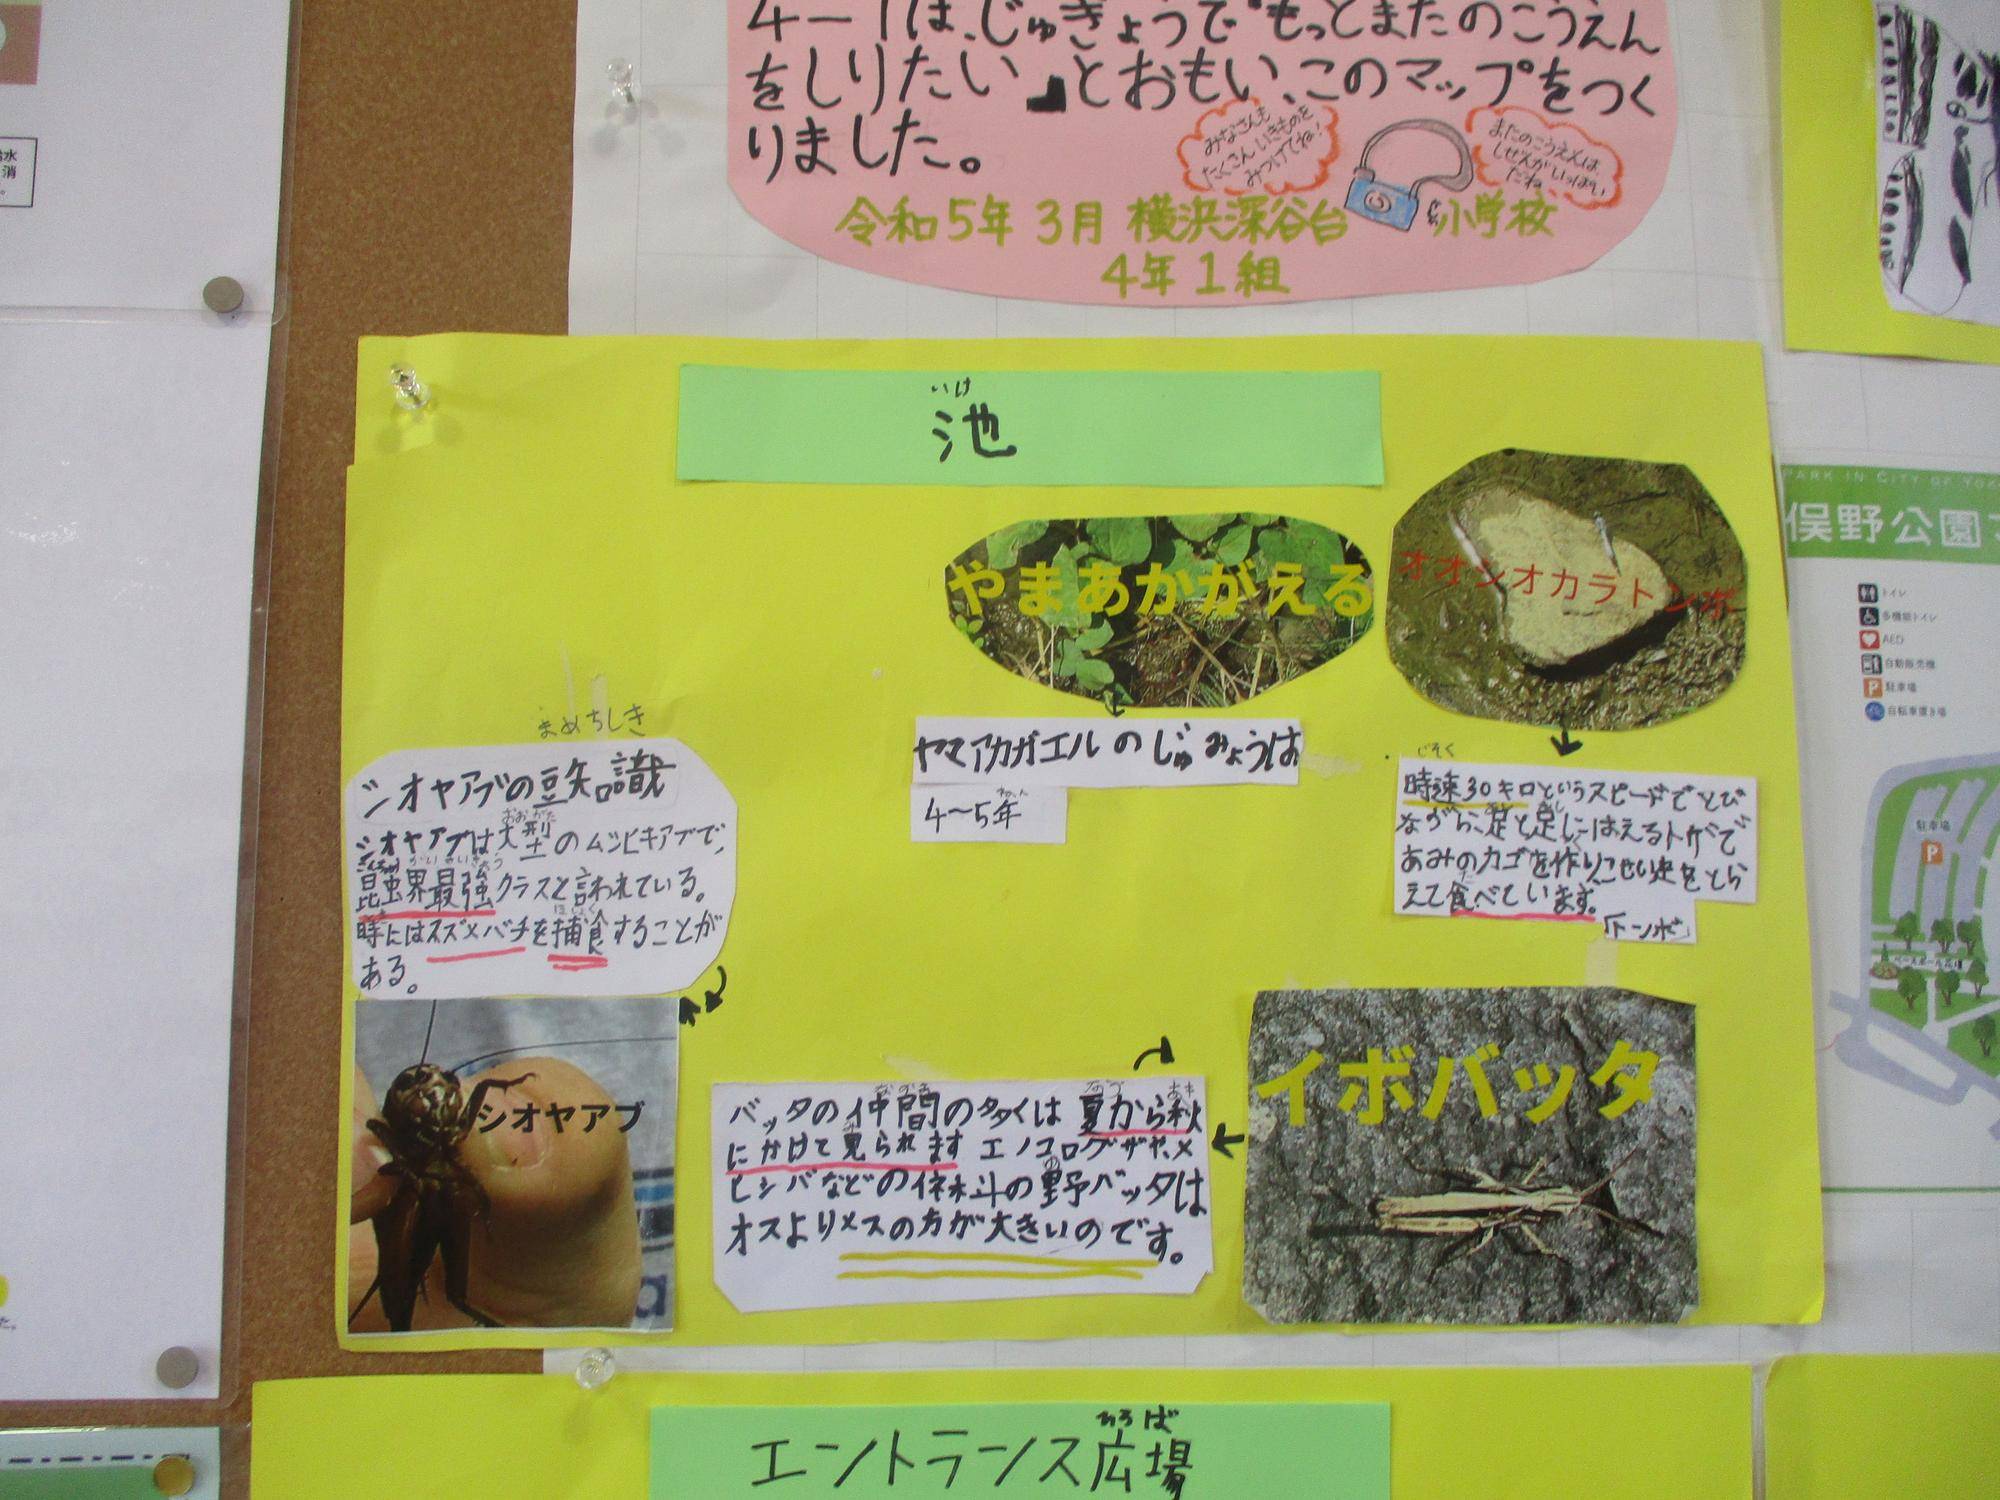 4-1は、じゅぎょうで『もっとまたのこうえん
をしりたい』とおもい、このマップをつく
りました。
みなさんも
たくさんいきものを
みつけてね!
またのこうえんは
しぜんがいっぱい
だね
令和5年3月 横浜深谷台小学校
4年1組
いけ
池
やまあかがえる
ヤマアカガエルのじゅみょうは
4〜5年
オオシオカラトンボ
じそく
時速30キロというスピードでとび
ながら、足と足にはえるトゲで
あみのカゴを作り、こせい虫をとら
えて食べています。
「トンボ」
まめちしき
シオヤアブの豆知識
シオヤアブは大型のムシヒキアブで、
昆虫界最強クラスと言われている。
時にはスズメバチを捕食することが
ある。
シオヤアブ
バッタの仲間の多くは夏から秋
にかけて見られます エノコログザや、メ
ヒシバなどのイネ科の野バッタは
オスよりメスの方が大きいのです。
イボバッタ
ひろば
エントランス広場
PARK IN CITY OF YOK
俣野公園マ
トイレ
多機能トイレ
AED
自動販売機
P 駐車場
自転車置き場
駐車場
P